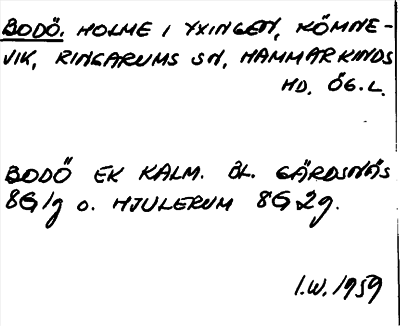 BODÖ. HOLME I YXINGEN, KÖMNE-
VIK, RINGARUMS SN, HAMMARKINDS
HD. ÖG.L.
BODÖ EK KALM. BL. GÄRDSNÄS
8G1g o. HJULERUM 8G2g.
I.W. 1959